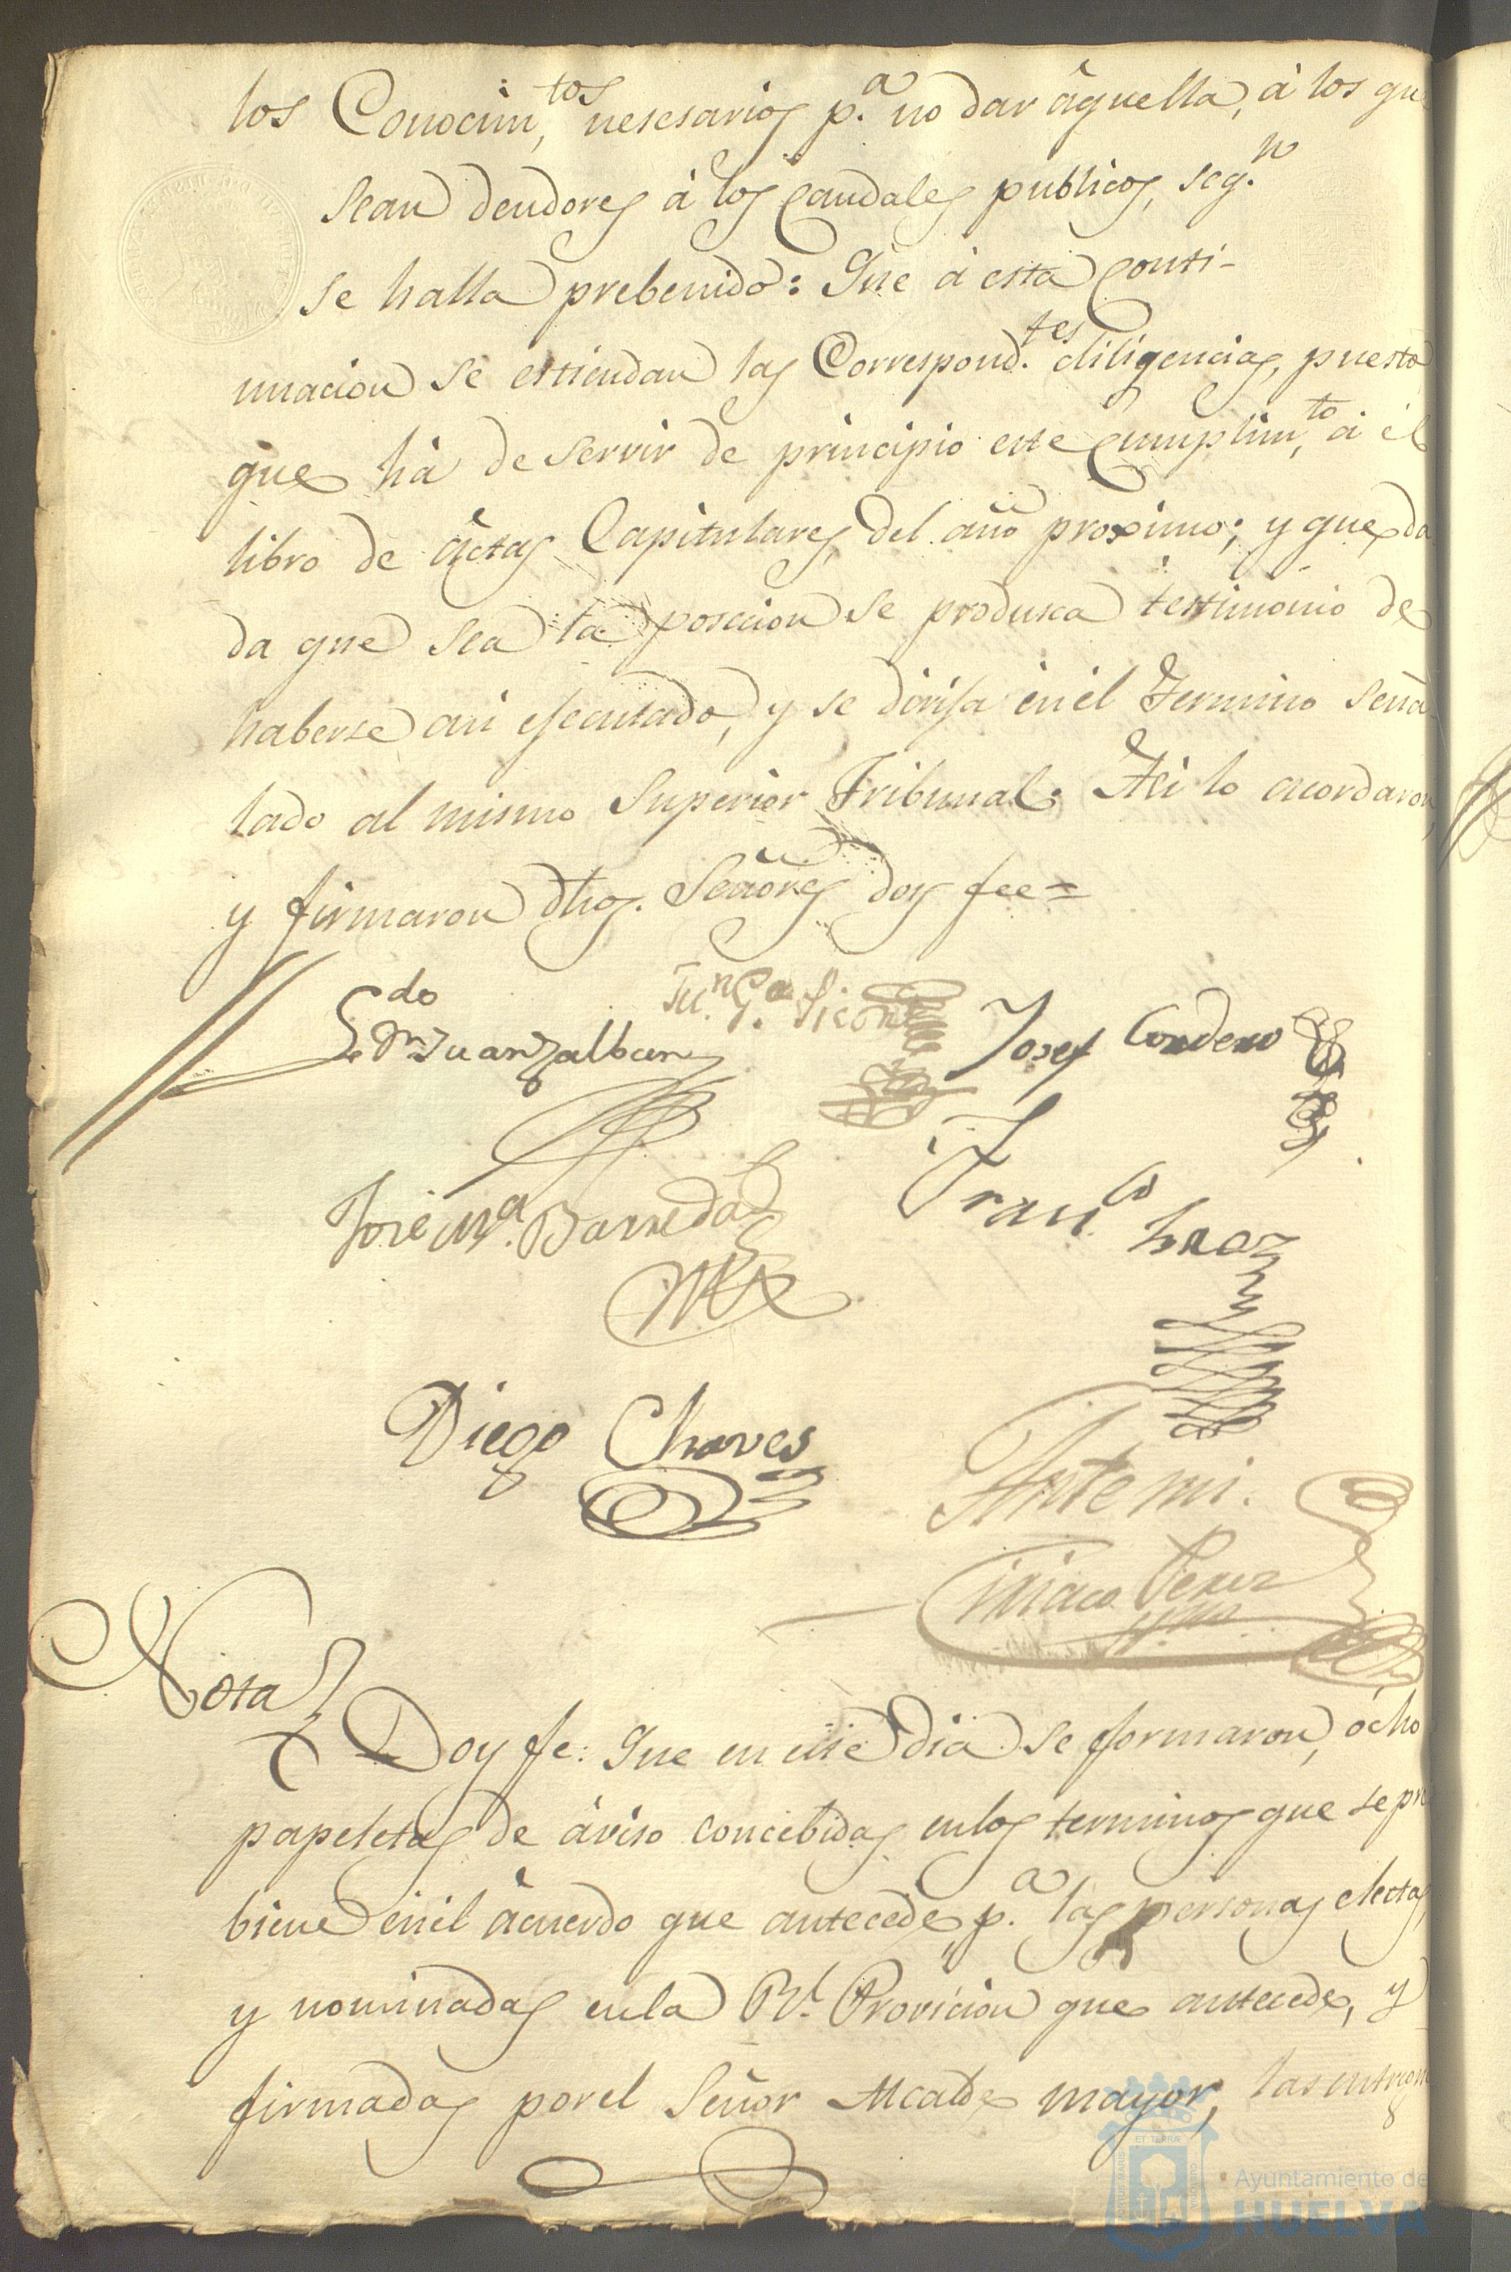 los Conocim,tos nesesarios p.a no dar âquella, á los qu
sean deudores á los Caudales publicos, seg.n
se halla prebenido: Que á esta Conti-
nuacion se estiendan las Correspond.tes diligencias, puesto
que há de servir de principio este Cumplim,to á él
libro de áctas Capitulares del año proximo; y que da
da que sea la poseccion se produsca testimonio de
haberse asi ejecutado, y se dirija en él Termino seña
lado al mismo Superior Tribunal. Asi lo acordaron,
y firmaron dhos. Señores doy fee=
L.do Dn Juan Zalban
Ju.n G.a
Josef Cordero
José M.a Barreda
Fran.co
Diego Chaves
Ante mi.
Ciriaco Perez
Nota
Doy fe: Que en este Dia se formaron, ócho
papeletas de áviso concebidas en los terminos que se pre
biene en él ácuerdo que antecede, p.a las personas electas,
y nominadas en la Rl. Provicion que antecede, y
firmadas por el Señor Alcalde mayor, las entregu
Ayuntamiento de
HUELVA